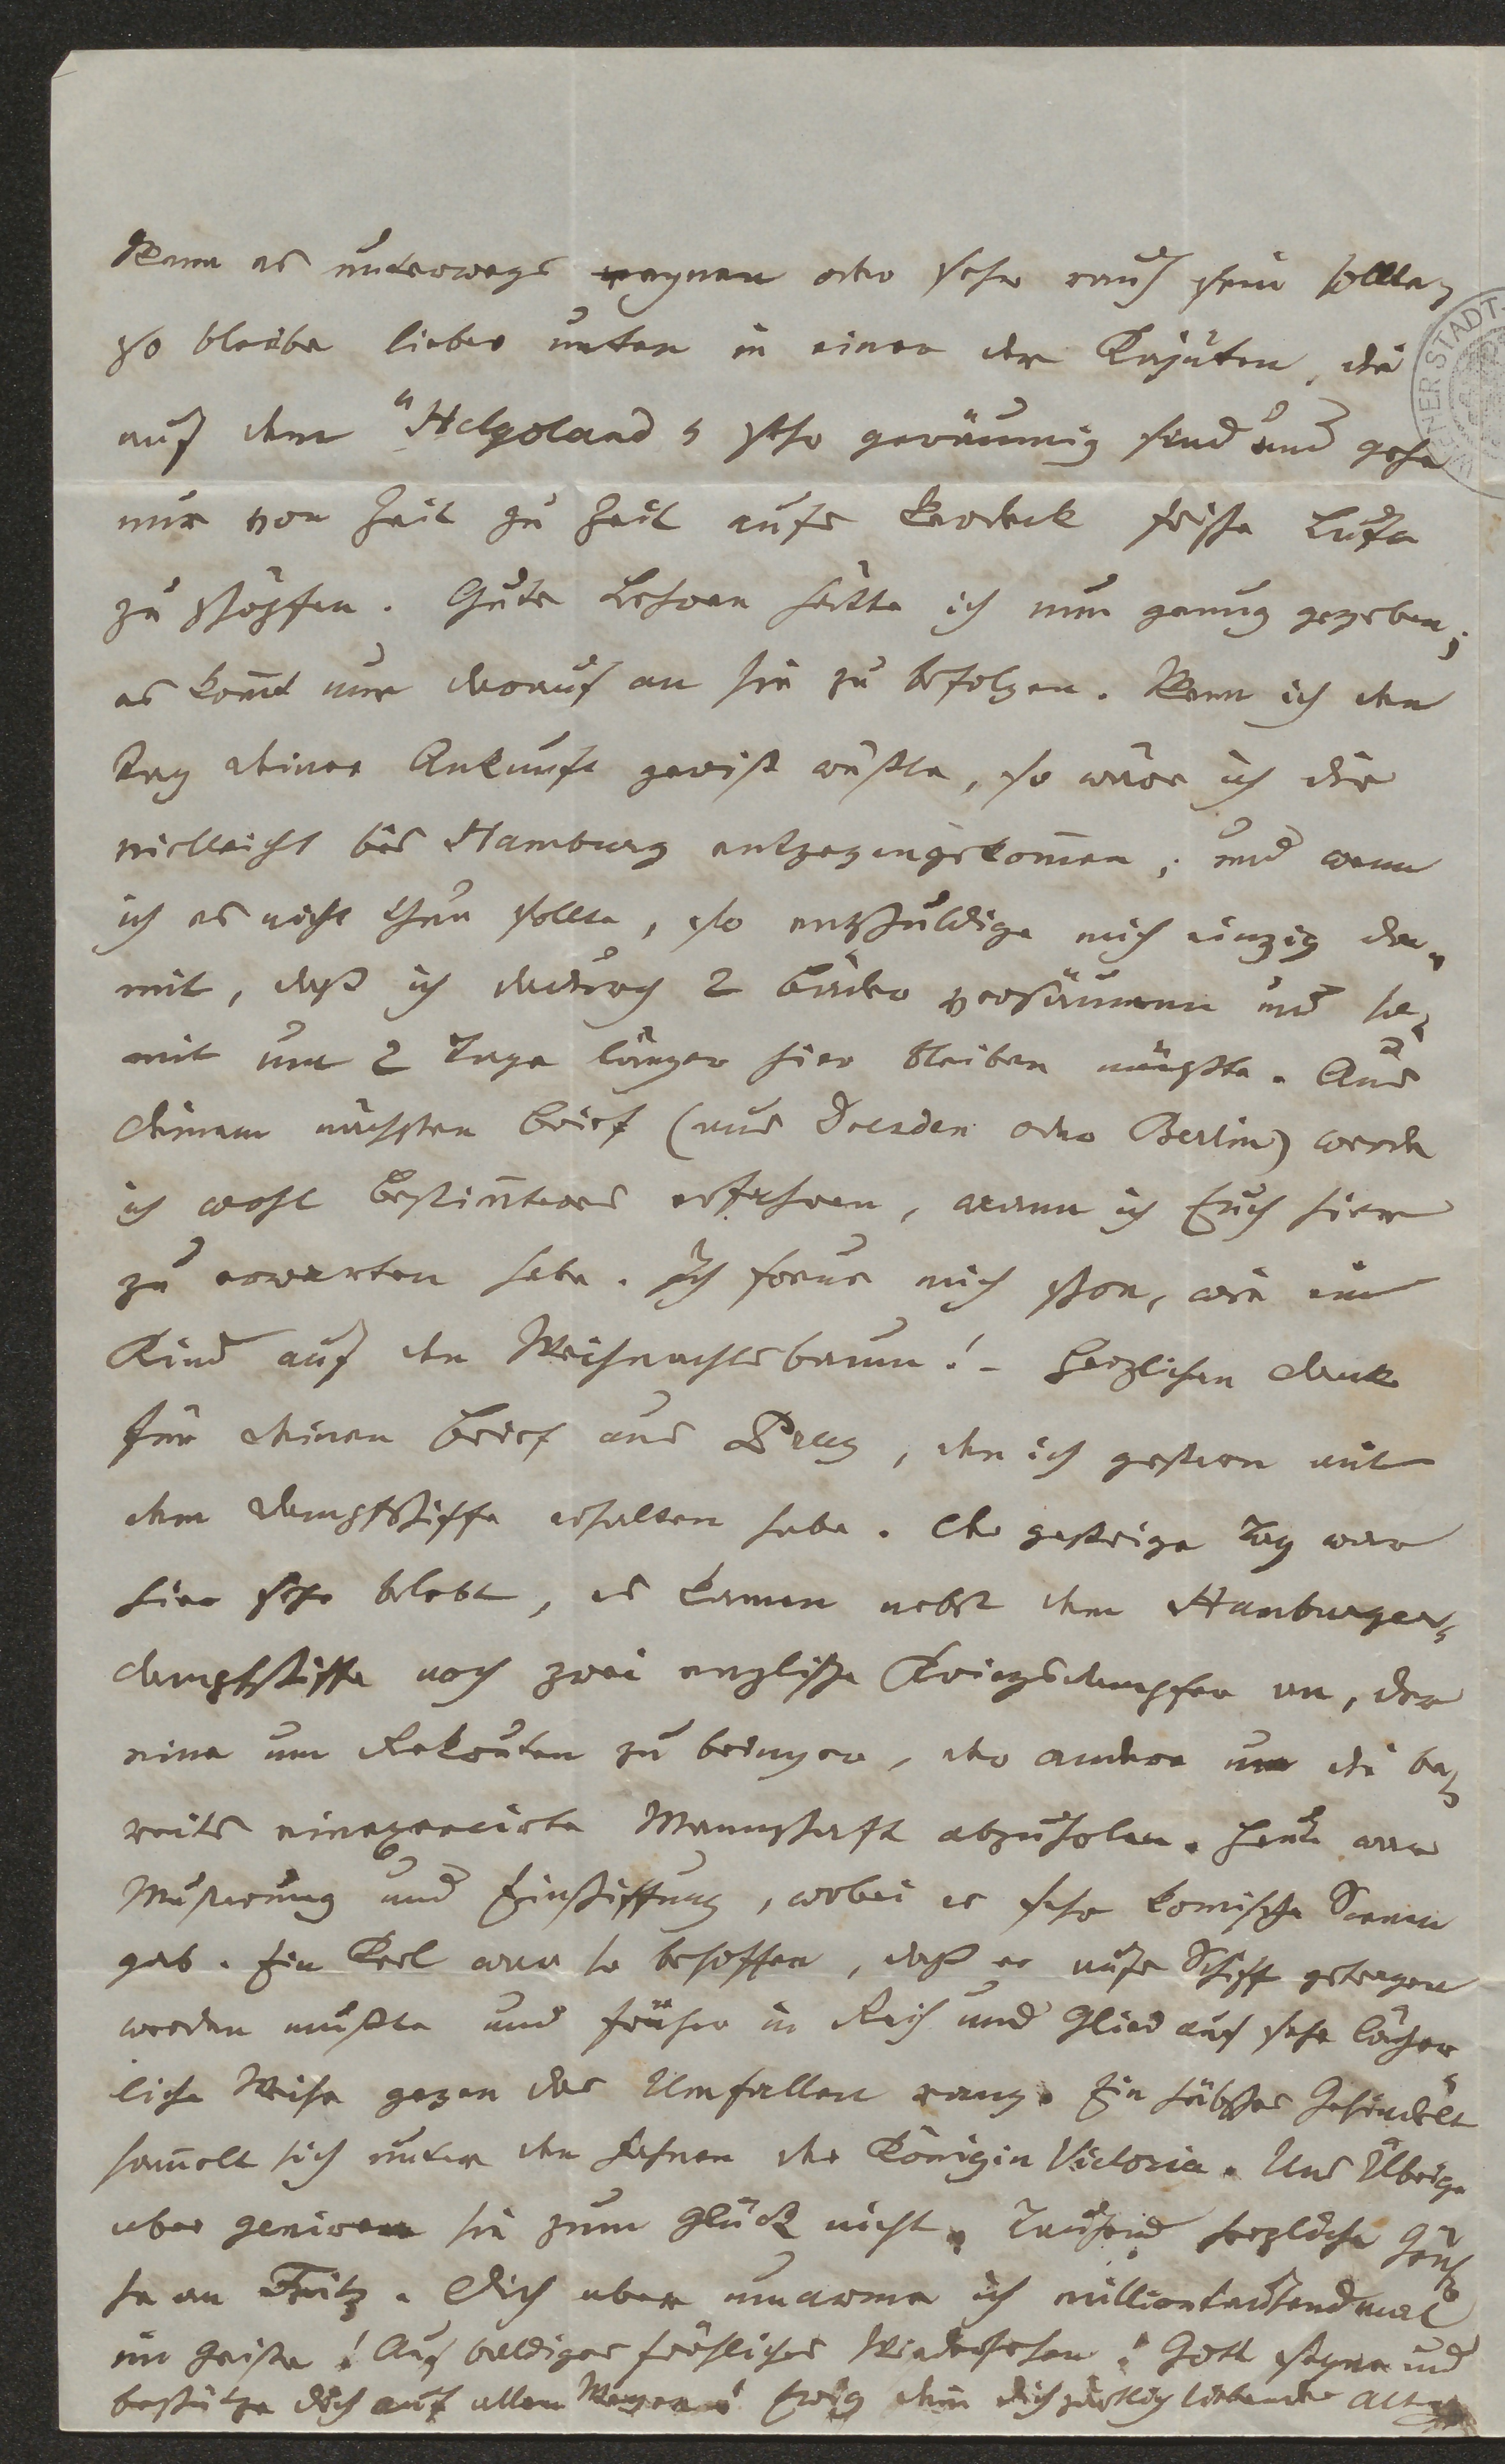 Wenn es unterwegs regnen oder sehr rauh sein sollte,
so bleibe lieber unten in einer der Kajüten, die
auf dem "Helgoland" sehr geräumig sind und gehe
nur von Zeit zu Zeit aufs Verdeck frische Luft
zu schöpfen. Gute Lehren hätte ich nun genug gegeben;
es kom̄t nur darauf an sie zu befolgen. Wenn ich den
Tag deiner Ankunft gewiß wüßte, so wäre ich dir
vielleicht bis Hamburg entgegengekom̄en; und wenn
ich es nicht thun sollte, so entschuldige mich einzig da-
mit, daß ich dadurch 2 Bäder versäumen und so-
mit um 2 Tage länger hier bleiben müßte. Aus
deinem nächsten Brief (aus Dresden oder Berlin) werde
ich wohl Bestim̄teres erfahren, wann ich Euch hier
zu erwarten habe. Ich freue mich schon, wie ein
Kind auf den Weihnachtsbaum! - Herzlichen Dank
für deinen Brief aus Prag, den ich gestern mit
dem Dampfschiffe erhalten habe. Der gestrige Tag war
hier sehr belebt, es kamen nebst dem Hamburger-
dampfschiffe noch zwei englische Kriegsdampfer an, der
eine um Rekruten zu bringen, der andere um die be-
reits einexercirte Mannschaft abzuholen. Heute war
Musterung und Einschiffung, wobei es sehr komische Scenen
gab. Ein Kerl war so besoffen, daß er aufs Schiff getragen
werden mußte und früher in Reih und Glied auf sehr lächer
liche Weise gegen das Umfallen rang. Ein hübsches Gesindel
sam̄elt sich unter den Fahnen der Königin Victoria. Uns Übrige
aber geniren sie zum Glück nicht. Tausend herzliche Grüs-
se an Fritz. Dich aber umarme ich milliontausendmal
im Geiste! Auf baldiges fröhliches Wiedersehen! Gott segne und
beschütze dich auf allen Wegen! Ewig dein dich zärtlich liebender Alter